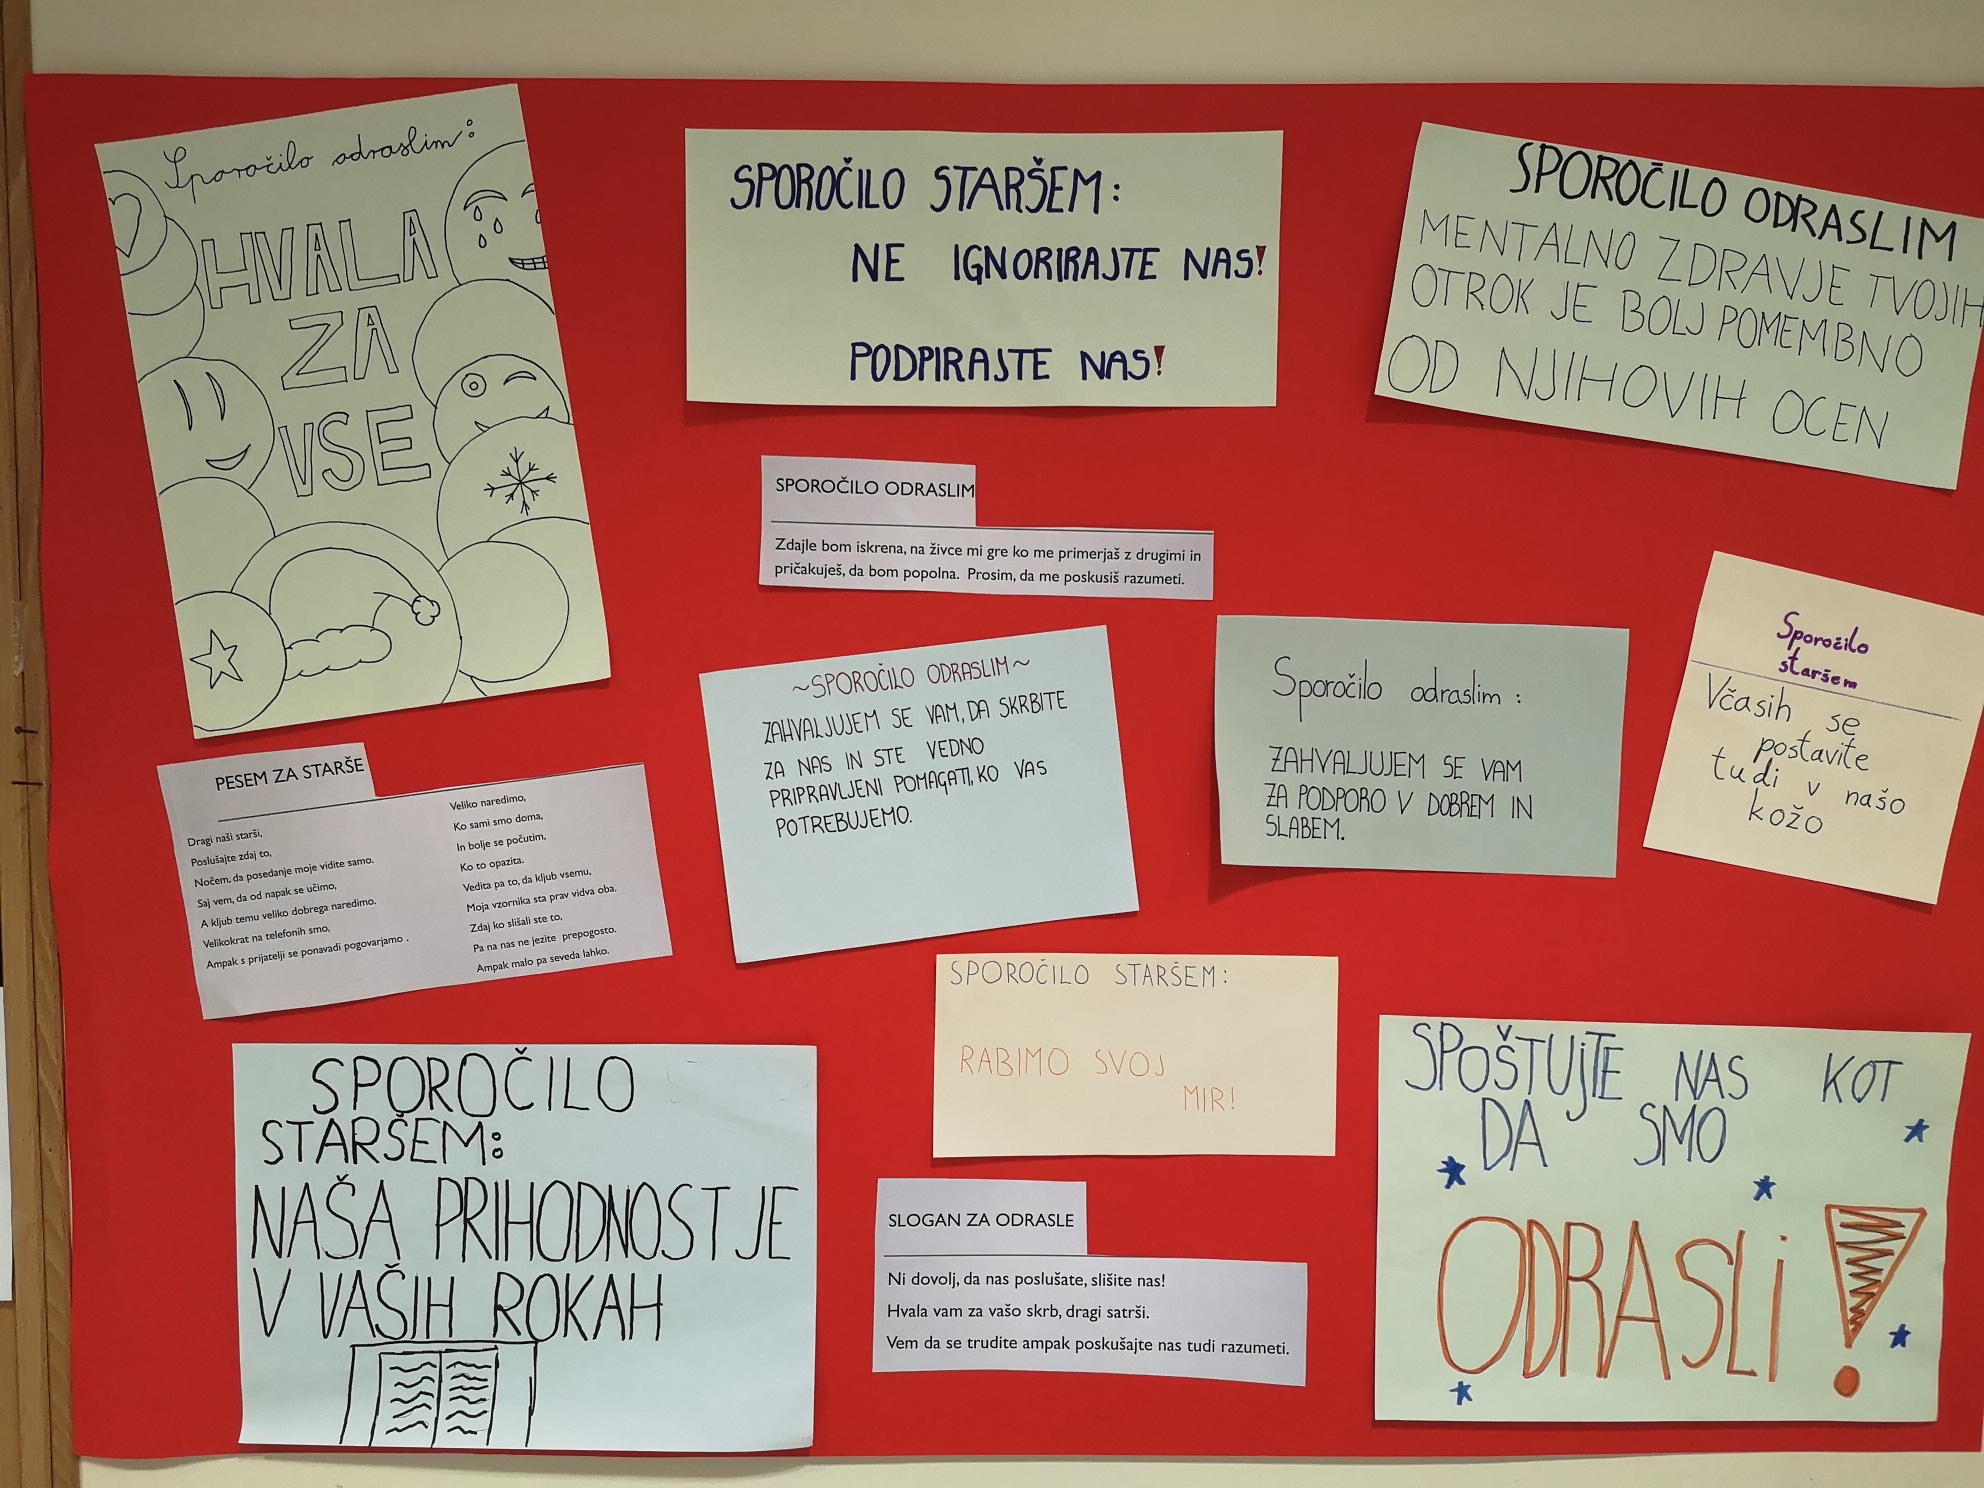 Sporočilo odraslim:
HVALA
ZA
VSE
SPOROČILO STARŠEM:
NE IGNORIRAJTE NAS!
PODPIRAJTE NAS!
SPOROČILO ODRASLIM
MENTALNO ZDRAVJE TVOJIH
OTROK JE BOLJ POMEMBNO
OD NJIHOVIH OCEN
SPOROČILO ODRASLIM
Zdajle bom iskrena, na živce mi gre ko me primerjaš z drugimi in
pričakuješ, da bom popolna. Prosim, da me poskusiš razumeti.
~SPOROČILO ODRASLIM~
ZAHVALJUJEM SE VAM, DA SKRBITE
ZA NAS IN STE VEDNO
PRIPRAVLJENI POMAGATI, KO VAS
POTREBUJEMO.
Sporočilo odraslim:
ZAHVALJUJEM SE VAM
ZA PODPORO V DOBREM IN
SLABEM.
Sporočilo
staršem
Včasih se
postavite
tudi v našo
kožo
PESEM ZA STARŠE
Dragi naši starši,
Poslušajte zdaj to,
Nočem, da posedanje moje vidite samo.
Saj vem, da od napak se učimo,
A kljub temu veliko dobrega naredimo.
Velikokrat na telefonih smo,
Ampak s prijatelji se ponavadi pogovarjamo .
Veliko naredimo,
Ko sami smo doma,
In bolje se počutim,
Ko to opazita.
Vedita pa to, da kljub vsemu,
Moja vzornika sta prav vidva oba.
Zdaj ko slišali ste to,
Pa na nas ne jezite prepogosto.
Ampak malo pa seveda lahko.
SPOROČILO STARŠEM:
RABIMO SVOJ
MIR!
SPOROČILO
STARŠEM:
NAŠA PRIHODNOST JE
V VAŠIH ROKAH
SLOGAN ZA ODRASLE
Ni dovolj, da nas poslušate, slišite nas!
Hvala vam za vašo skrb, dragi satrši.
Vem da se trudite ampak poskušajte nas tudi razumeti.
SPOŠTUJTE NAS KOT
DA SMO
ODRASLI!